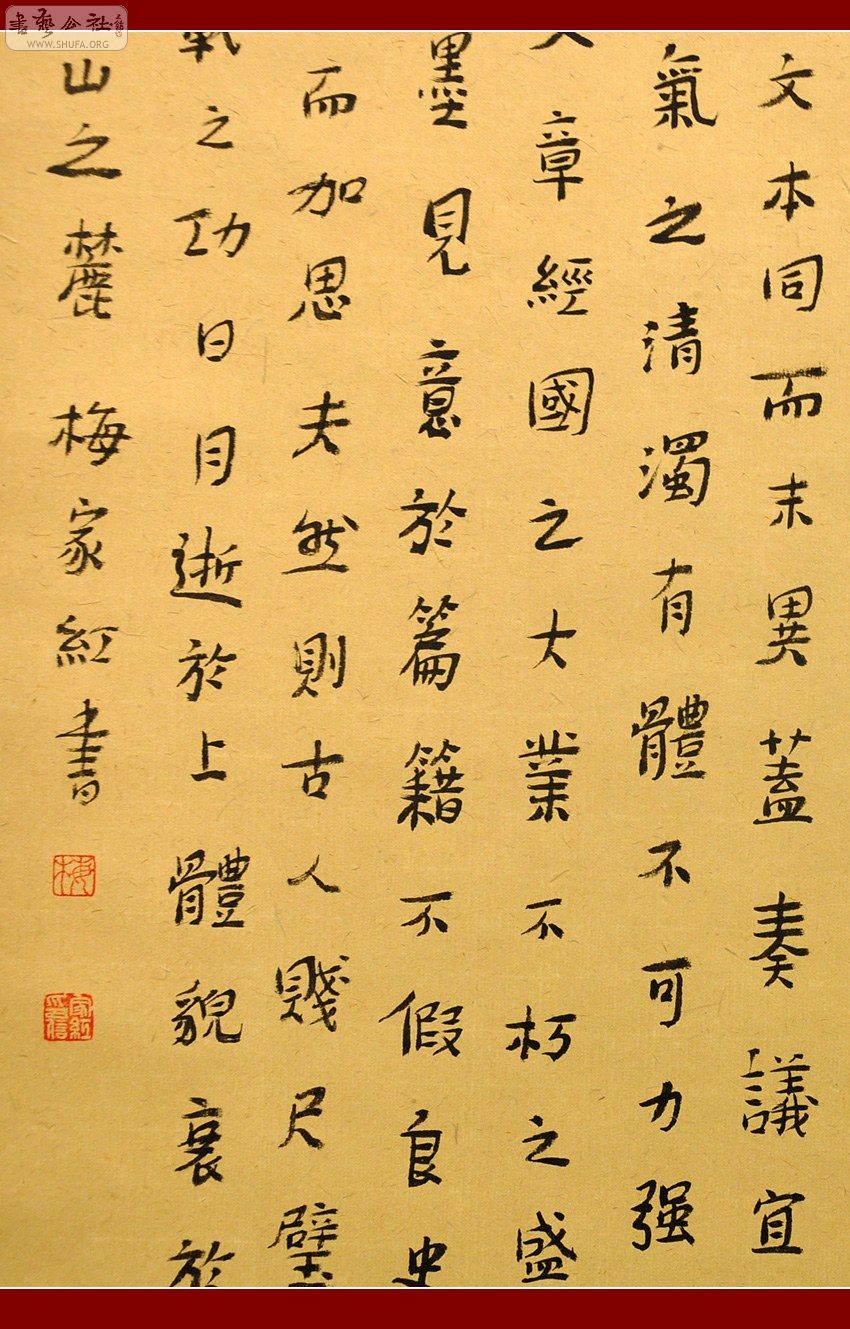 書藝公社
WWW.SHUFA.ORG
文本同而末異蓋奏議宜
氣之清濁有體不可力强
章經國之大業不朽之盛
墨見意於篇籍不假良史
而加思夫然則古人賤尺璧
之功日月逝於上體貌衰於
山之麓 梅家紅書
梅